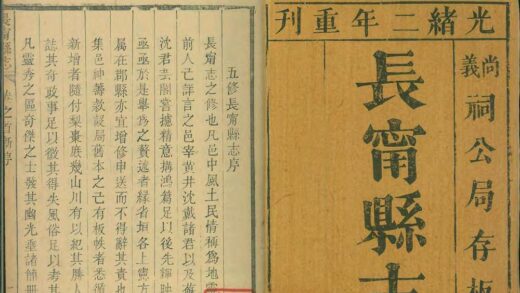 光緒二年重刊
尚義祠公局存板
長甯縣志
五修長甯縣志序
長甯志之修也凡邑中風土民情稱為地靈
前人已詳言之邑宰黃井沈戴諸君以及蘇
沈君芸閣嘗據精意搆鴻篇足以後先輝映
亟亟於是舉為之贅述者緣省垣各上憲方
屬在郡縣亦宜增修申送而不得辭其責也
集邑紳籌欵設局舊本之已有板帙者悉循
新增者隨付梨棗庶幾山川有以紀其勝人
誌其奇政事足以徵其得失風俗足以考其
凡靈秀之區奇傑之士發其幽光垂諸簡冊
長甯縣志 卷之首 新序